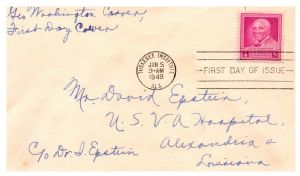 Geo Washington Carver,
First Day Cover
TUSKEGEE INSTITUTE
JAN 5
9-AM
1948
ALA.
FIRST DAY OF ISSUE
Mr. David Epstein,
U.S.V.A Hospital,
C/o Dr. I. Epstein
Alexandria
Louisiana